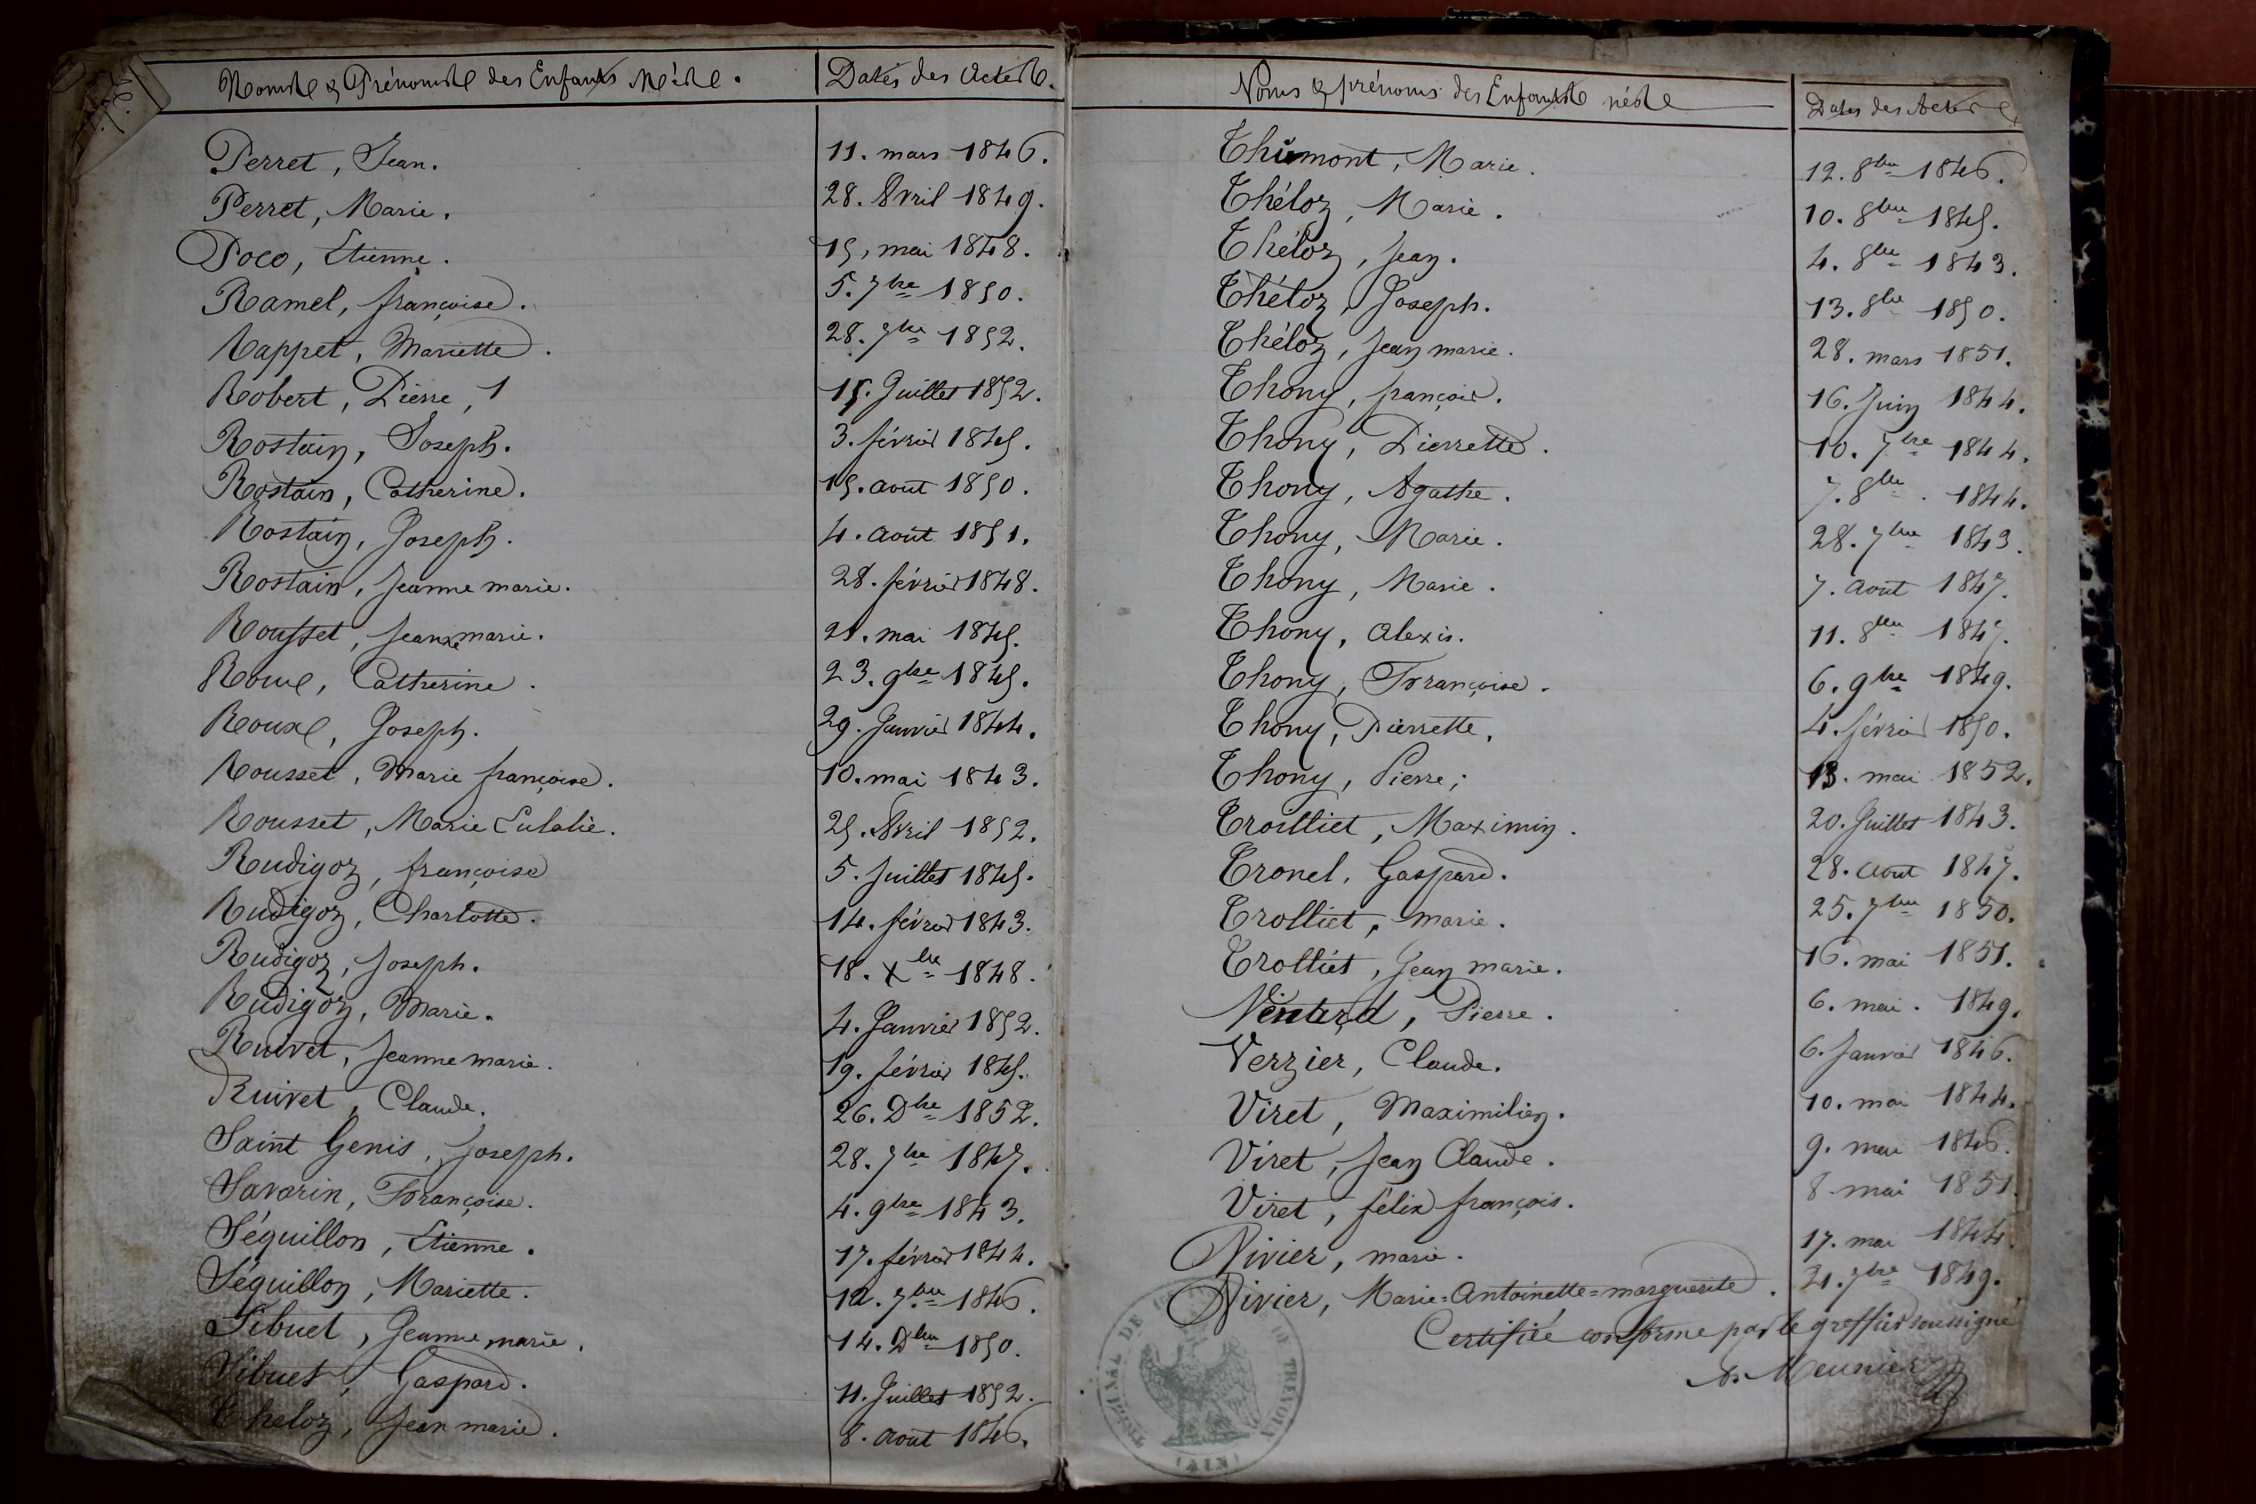 Noms & Prénoms des Enfants Nés. Dates des Actes.
Perret, Jean. 11. mars 1846.
Perret, Marie. 28. Avril 1849.
Poco, Etienne. 15, mai 1848.
Ramel, françoise. 5. 7bre 1850.
Rappet, Mariette. 28. 7bre 1852.
Robert, Pierre, 1 15. Juillet 1852.
Rostain, Joseph. 3. février 1845.
Rostain, Catherine. 15. août 1850.
Rostain, Joseph. 4. août 1851.
Rostain, Jeanne marie. 28. février 1848.
Rousset, Jean marie. 21. mai 1845.
Roux, Catherine. 23. 9bre 1845.
Roux, Joseph. 29. Janvier 1844.
Rousset, Marie françoise. 10. mai 1843.
Rousset, Marie Eulalie. 25. Avril 1852.
Rudigoz, françoise 5. Juillet 1845.
Rudigoz, Charlotte. 14. février 1843.
Rudigoz, Joseph. 18. Xbre 1848.
Rudigoz, Marie. 4. Janvier 1852.
Ruivet, Jeanne marie. 19. février 1845.
Ruivet, Claude. 26. Dbre 1852.
Saint Genis, Joseph. 28. 7bre 1847.
Savarin, Françoise. 4. 9bre 1843.
Séquillon, Etienne. 17. février 1844.
Séquillon, Mariette. 12. 7bre 1846.
Sibuet, Jeanne marie. 14. Dbre 1850.
Sibuet, Gaspard. 11. Juillet 1852.
Théloz, Jean marie. 8. août 1846.
Noms & prénoms des Enfants nés Dates des Actes
Thimont, Marie. 12. 8bre 1846.
Théloz, Marie. 10. 8bre 1845.
Théloz, Jean. 4. 8bre 1843.
Théloz, Joseph. 13. 8bre 1850.
Théloz, Jean marie. 28. mars 1851.
Thony, françois. 16. Juin 1844.
Thony, Pierrette. 10. 7bre 1844.
Thony, Agathe. 7. 8bre. 1844.
Thony, Marie. 28. 7bre 1843.
Thony, Marie. 7. août 1847.
Thony, Alexis. 11. 8bre 1847.
Thony, Françoise. 6. 9bre 1849.
Thony, Pierrette. 4. février 1850.
Thony, Pierre; 13. mai 1852.
Troilliet, Maximin. 20. Juillet 1843.
Tronel, Gaspard. 28. août 1847.
Trolliet, marie. 25. 7bre 1850.
Trolliet, Jean marie. 16. mai 1851.
Pierre. 6. mai. 1849.
Verzier, Claude. 6. Janvier 1846.
Viret, Maximilien. 10. mai 1844.
Viret, Jean Claude. 9. mai 1846.
Viret, félix françois. 8 mai 1851.
Vivier, marie. 17. mai 1844.
Vivier, Marie=Antoinette=marguerite. 21. 7bre 1849.
Certifié conforme par le greffier soussigné
Meunier
TRIBUNAL DE TREVOUX
(AIN)